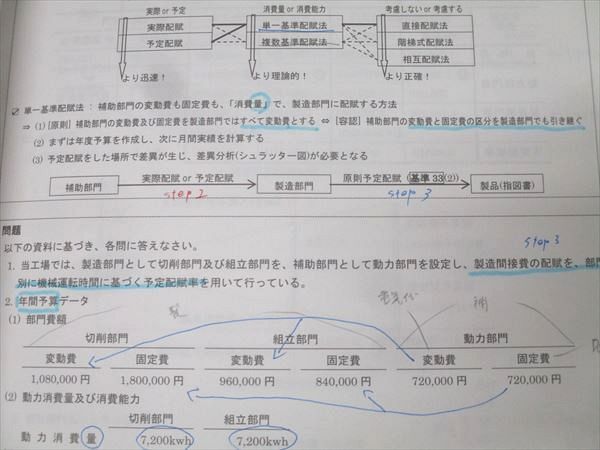 実際 or 予定 消費量 or 消費能力 考慮しない or 考慮する
実際配賦 単一基準配賦法 直接配賦法
予定配賦 複数基準配賦法 階梯式配賦法
相互配賦法
より迅速！ より理論的！ より正確！
単一基準配賦法：補助部門の変動費も固定費も、「消費量」で、製造部門に配賦する方法
⇒ (1)[原則] 補助部門の変動費及び固定費を製造部門ではすべて変動費とする ⇔ [容認] 補助部門の変動費と固定費の区分を製造部門でも引き継ぐ
(2) まずは年度予算を作成し、次に月間実績を計算する
(3) 予定配賦をした場所で差異が生じ、差異分析(シュラッター図)が必要となる
実際配賦 or 予定配賦 原則予定配賦 (基準 33(2))
補助部門 製造部門 製品(指図書)
step 2 step 3
問題
以下の資料に基づき、各問に答えなさい。
step 3
1. 当工場では、製造部門として切削部門及び組立部門を、補助部門として動力部門を設定し、製造間接費の配賦を、部門
別に機械運転時間に基づく予定配賦率を用いて行っている。
2. 年間予算データ
製 電気代 補
(1) 部門費額
切削部門 組立部門 動力部門
変動費 固定費 変動費 固定費 変動費 固定費
1,080,000 円 1,800,000 円 960,000 円 840,000 円 720,000 円 720,000 円
(2) 動力消費量及び消費能力
切削部門 組立部門
動力消費量 7,200kwh 7,200kwh